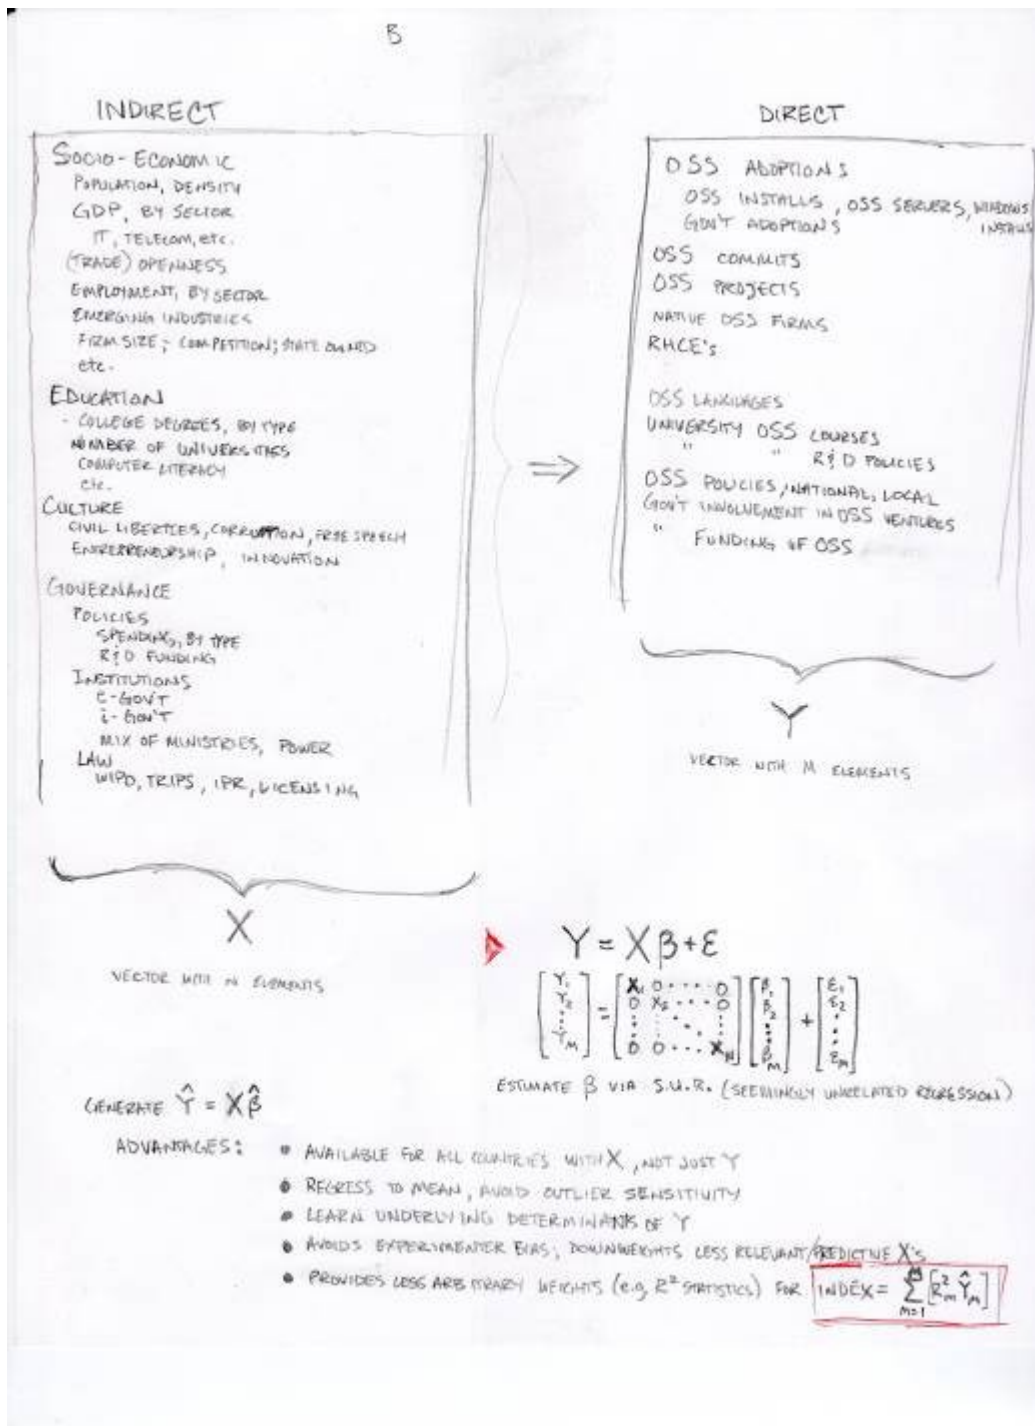 B
INDIRECT
SOCIO-ECONOMIC
POPULATION, DENSITY
GDP, BY SECTOR
IT, TELECOM, etc.
(TRADE) OPENNESS
EMPLOYMENT, BY SECTOR
EMERGING INDUSTRIES
FIRM SIZE; COMPETITION; STATE OWNED
etc.
EDUCATION
- COLLEGE DEGREES, BY TYPE
NUMBER OF UNIVERSITIES
COMPUTER LITERACY
etc.
CULTURE
CIVIL LIBERTIES, CORRUPTION, FREE SPEECH
ENTREPRENEURSHIP, INNOVATION
GOVERNANCE
POLICIES
SPENDING, BY TYPE
R&D FUNDING
INSTITUTIONS
e-GOV'T
i-GOV'T
MIX OF MINISTRIES, POWER
LAW
WIPO, TRIPS, IPR, LICENSING
X
VECTOR WITH N ELEMENTS
⇒
DIRECT
OSS ADOPTIONS
OSS INSTALLS, OSS SERVERS, WINDOWS INSTALLS
GOV'T ADOPTIONS
OSS COMMITS
OSS PROJECTS
NATIVE OSS FIRMS
RHCE's
OSS LANGUAGES
UNIVERSITY OSS COURSES
" " R&D POLICIES
OSS POLICIES, NATIONAL, LOCAL
GOV'T INVOLVEMENT IN OSS VENTURES
" FUNDING OF OSS
Y
VECTOR WITH M ELEMENTS
Y = Xβ + ε
[Y₁ Y₂ ⋮ Y_M] = [X₁ 0 ···· 0; 0 X₂ ··· 0; ⋮ ⋮ ⋱ ⋮; 0 0 ··· X_N] [β₁ β₂ ⋮ β_M] + [ε₁ ε₂ ⋮ ε_M]
ESTIMATE β VIA S.U.R. (SEEMINGLY UNRELATED REGRESSION)
GENERATE Ŷ = Xβ̂
ADVANTAGES:
• AVAILABLE FOR ALL COUNTRIES WITH X, NOT JUST Y
• REGRESS TO MEAN, AVOID OUTLIER SENSITIVITY
• LEARN UNDERLYING DETERMINANTS OF Y
• AVOIDS EXPERIMENTER BIAS; DOWNWEIGHTS LESS RELEVANT/PREDICTIVE X's
• PROVIDES LESS ARBITRARY WEIGHTS (e.g. R² STATISTICS) FOR INDEX = Σ_{m=1}^{M} [R²_m Ŷ_m]